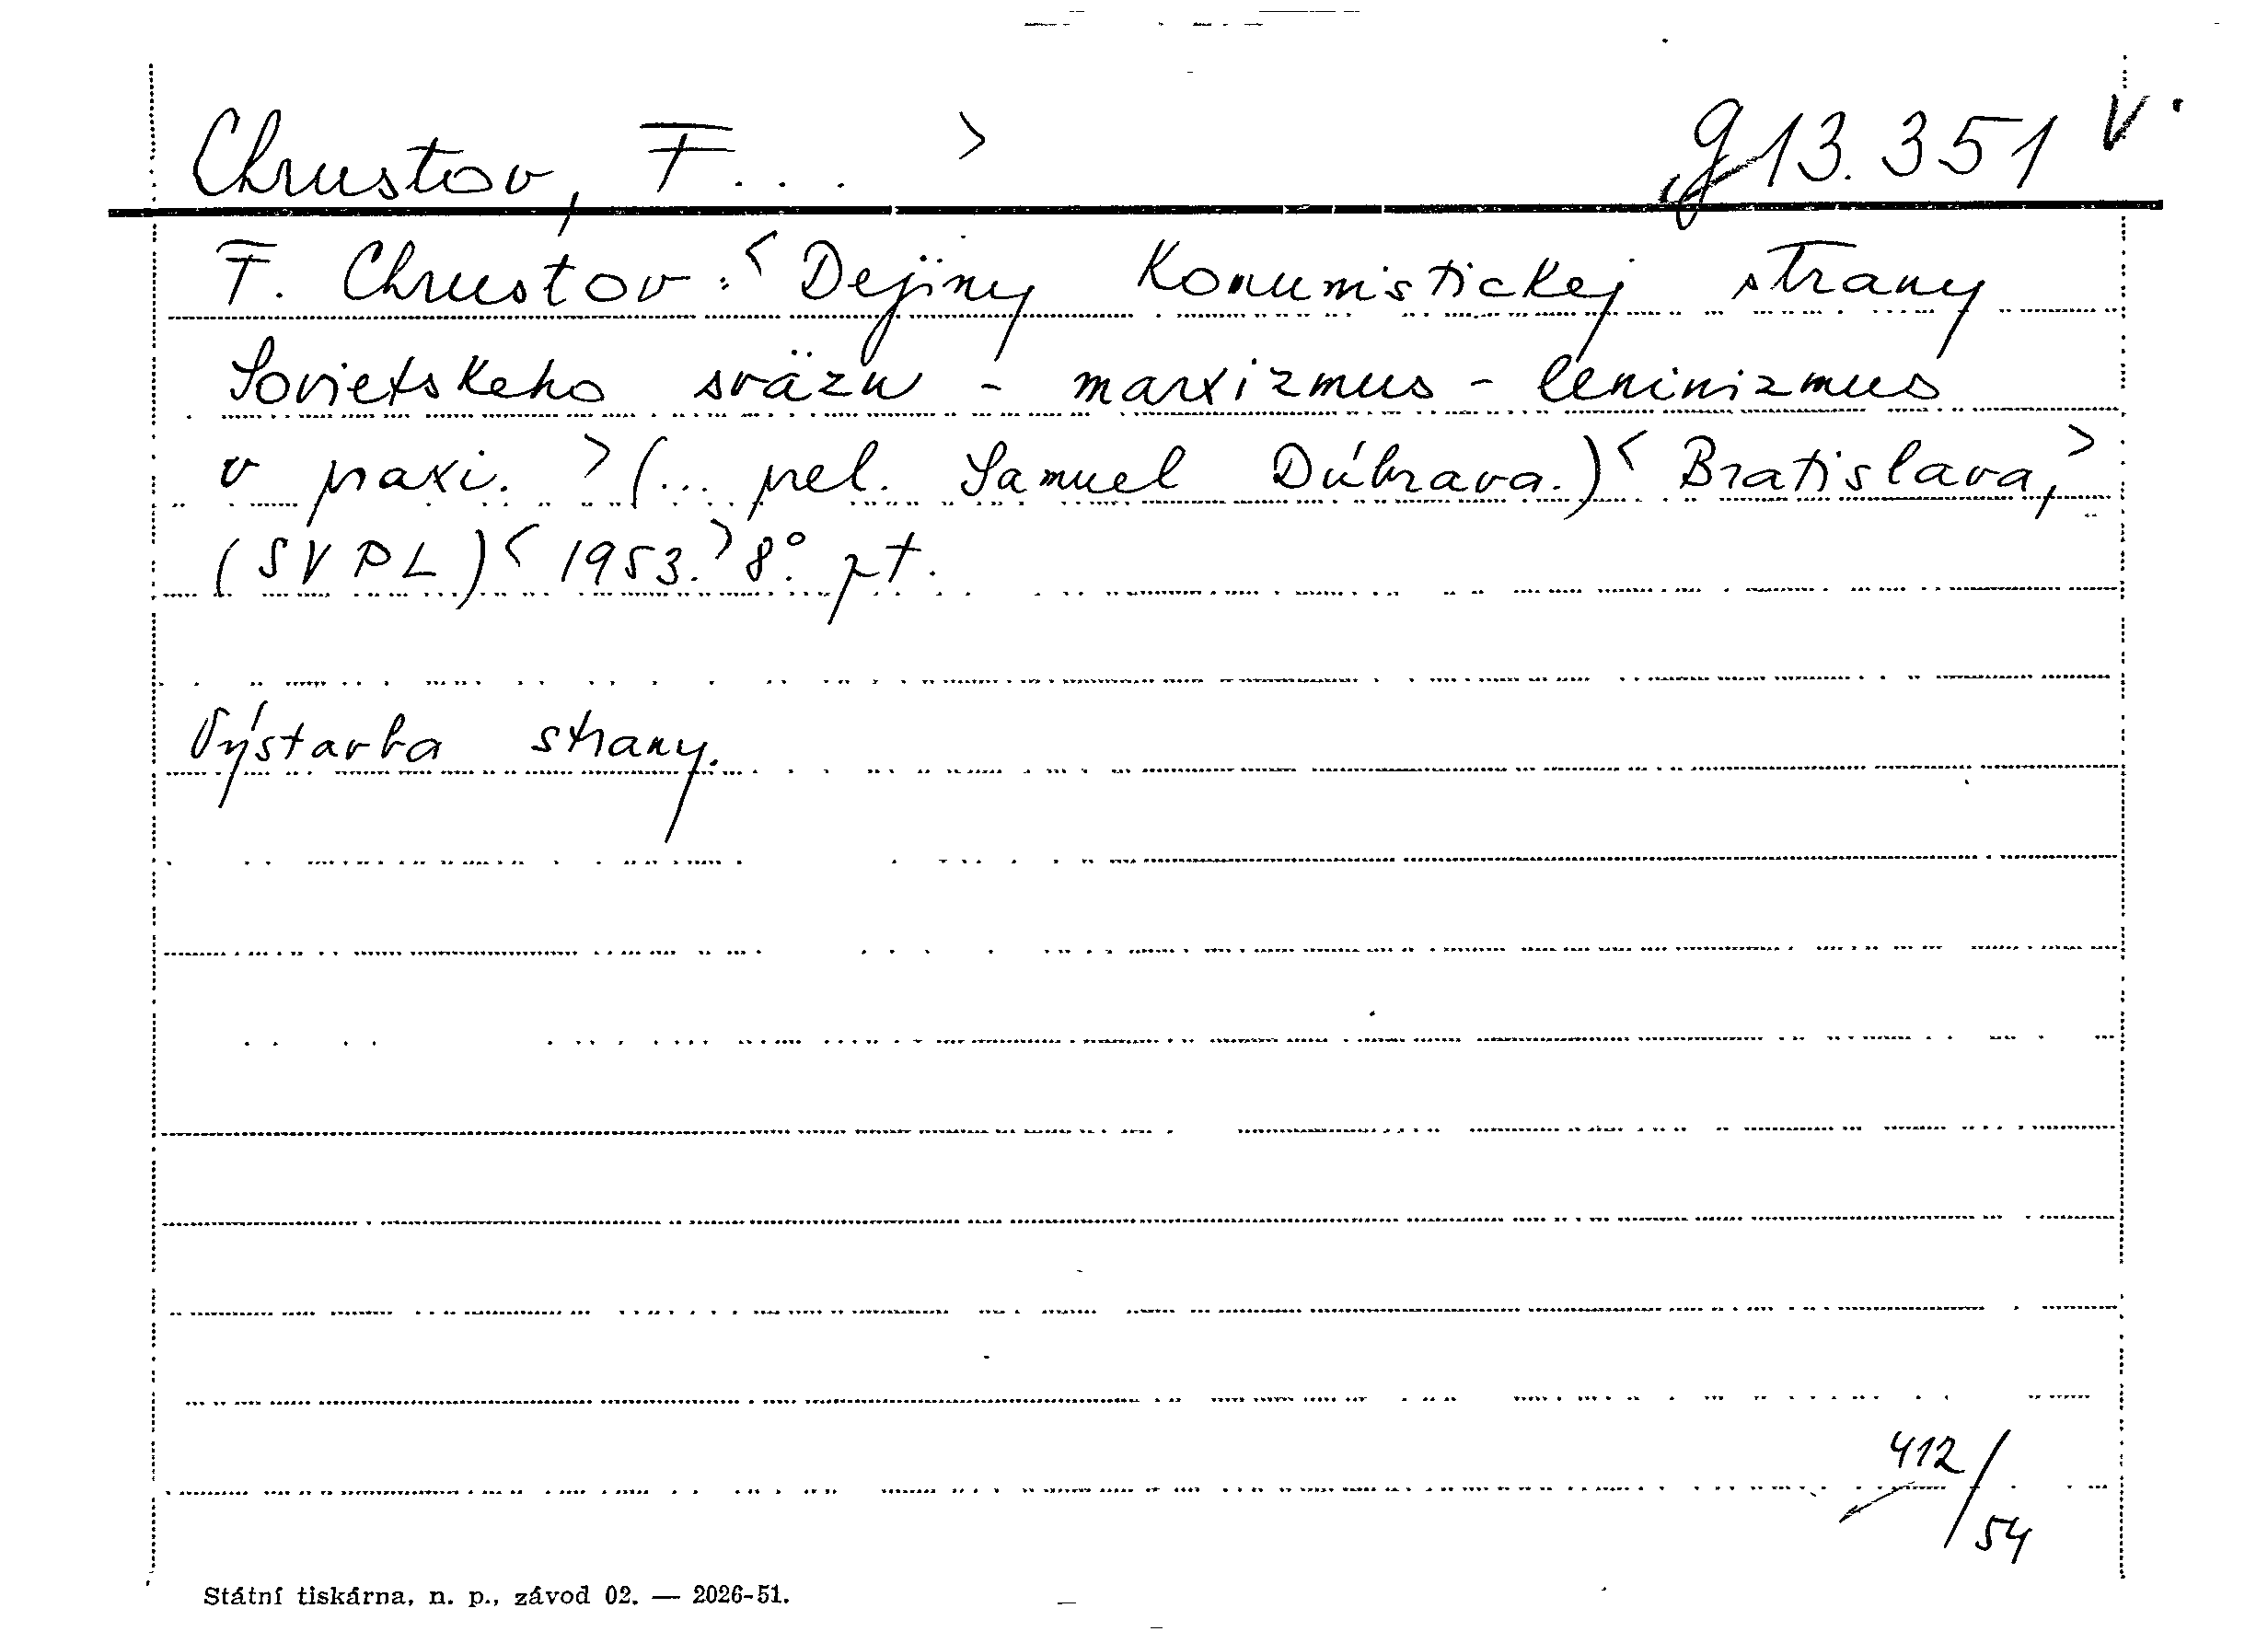 Chrustov, F... > g 13.351 V
F. Chrustov: < Dejiny Komunistickej strany
Sovietskeho sväzu - marxizmus - leninizmus
v praxi. > (... prel. Samuel Dúbrava.) < Bratislava, >
(SVPL) < 1953. > 8°. pt.
Výstavba strany.
412/54
Státní tiskárna, n. p., závod 02. — 2026-51.